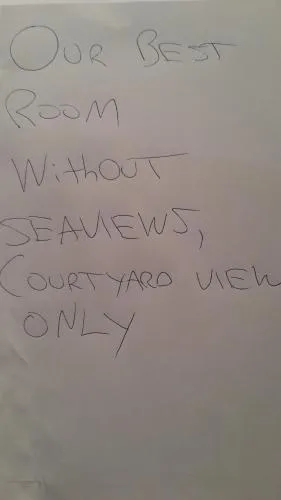 OUR BEST
ROOM
WithOUT
SEAVIEWS,
COURTYARD VIEW
ONLY